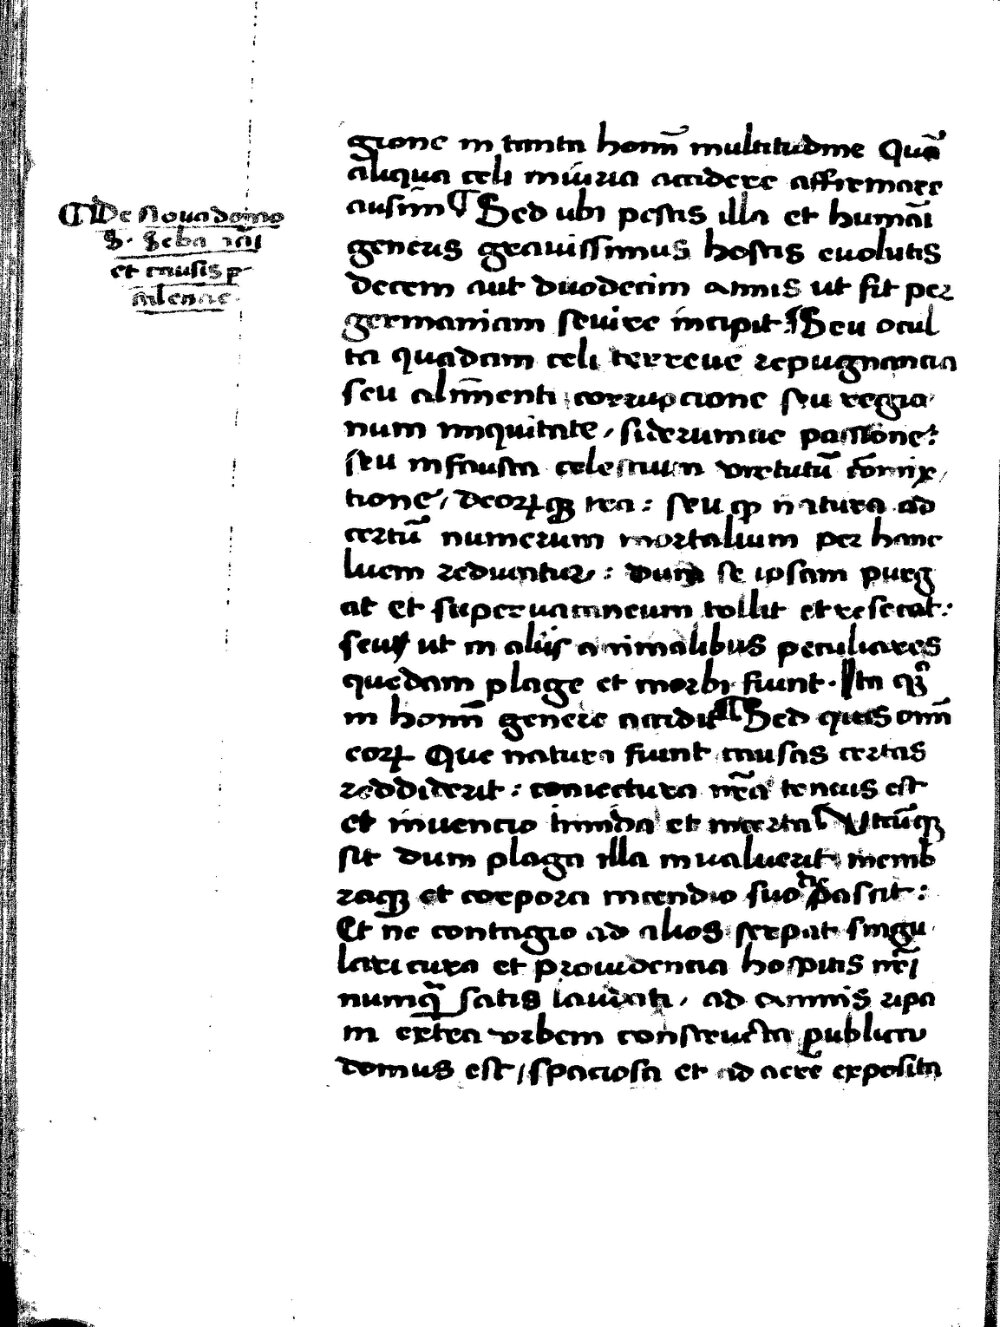 ¶ De noua domo
S. Seba
et causis p
gione in tanta homī multitudine quā
aliqua celi iniuria accidere affirmare
ausim ¶ Sed ubi pestis illa et humāi
generis grauissimus hostis euolutis
decem aut duodecim annis ut fit per
germaniam seuire incipit ¶ Seu ocul
ta quadam celi terreue repugnancia
seu alimenti corrupcione seu regio
num iniquitate / siderumue passione:
seu infausta celestium virtutū cōmix /
tione / deorꝝqꝫ ira: seu qꝫ natura ad
certū numerum mortalium per hanc
luem reducuntur: dum se ipsam purg
at et superuacuneum tollit et resecat:
seu ut in aliis animalibus peculiares
quedam plage et morbi fiunt. Ita
in homī genere accidit ¶ Sed quis omī
eorꝝ Que natura fiunt causas certas
reddiderit: coniectura nr̄a tenuis est
et inuencio et incerta ¶ Vtcūqꝫ
sit dum plaga illa inualuerit memb
raqꝫ et corpora incendio suo dep̄ascit:
Et ne contagio ad alios serpat singu
lari cura et prouidencia hospitis nr̄i
numqꝫ satis laudati / ad amnis ripa
in extra vrbem constructa publica
domus est / spaciosa et ad aere exposita